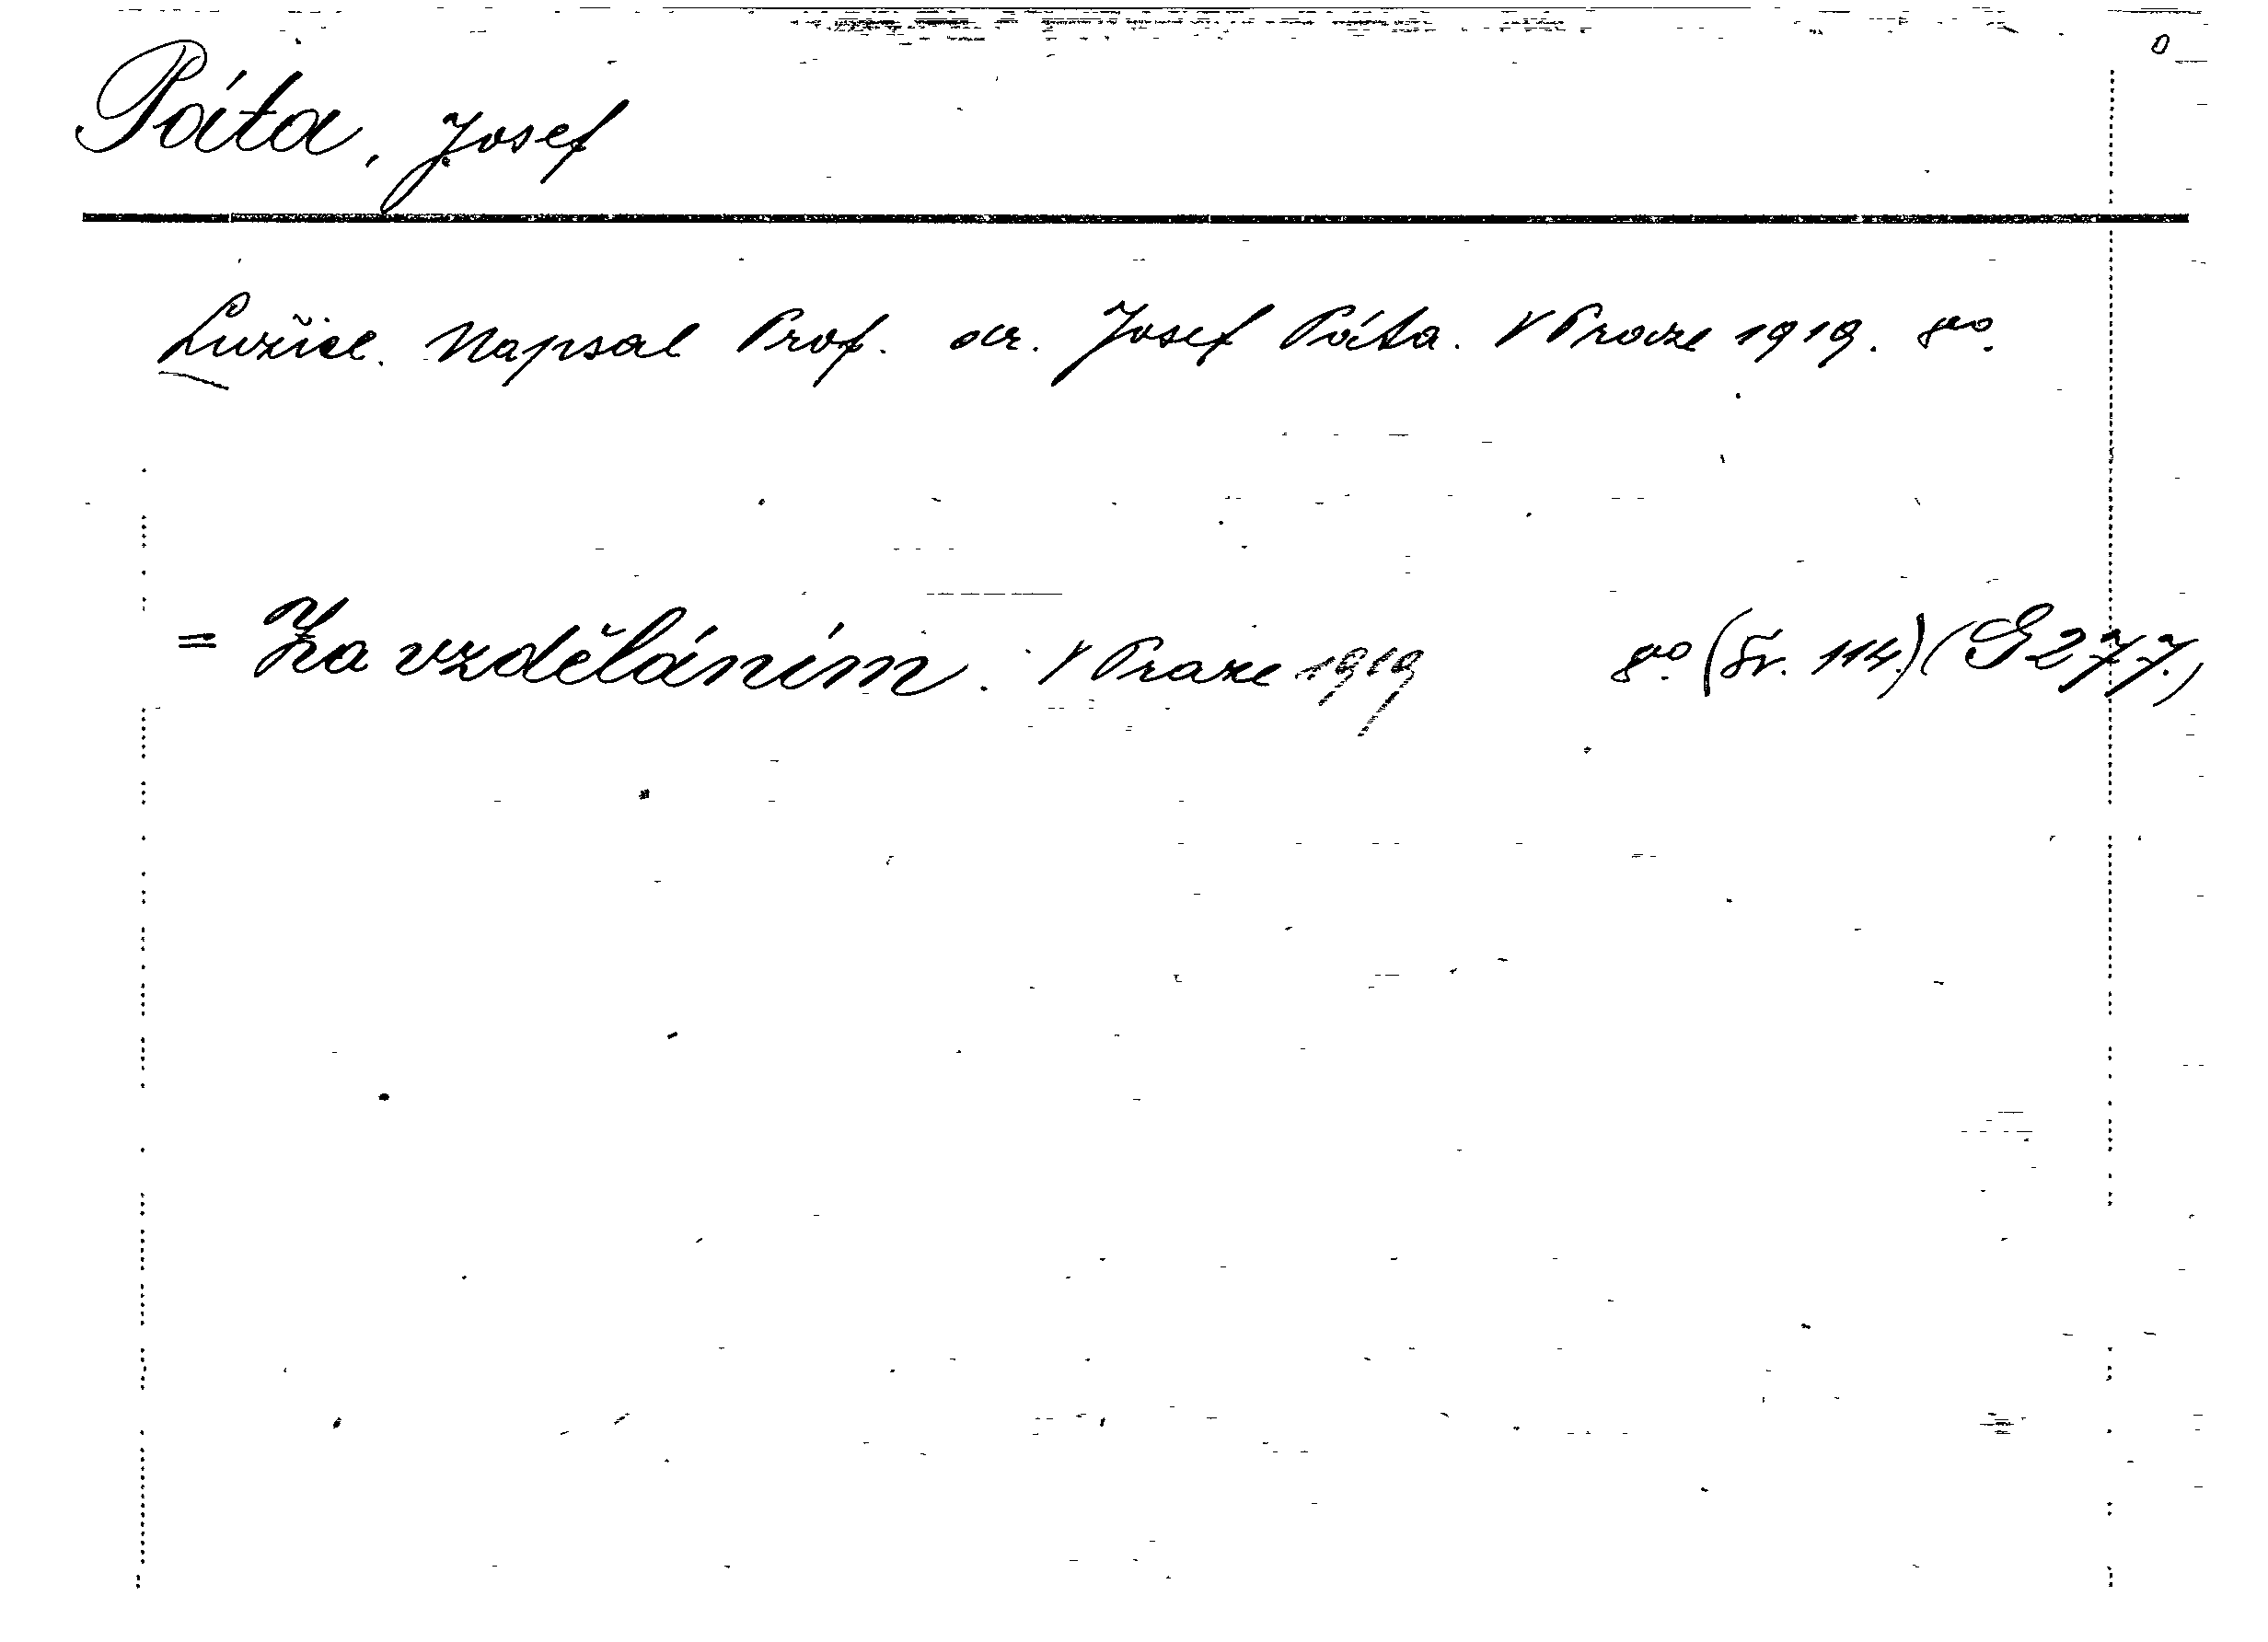 Páta, Josef
Lužice. Napsal Prof. dr. Josef Páta. V Praze 1919. 8o.
= Za vzděláním. V Praze 1919 8o. (Sv. 114.) (G 277.)